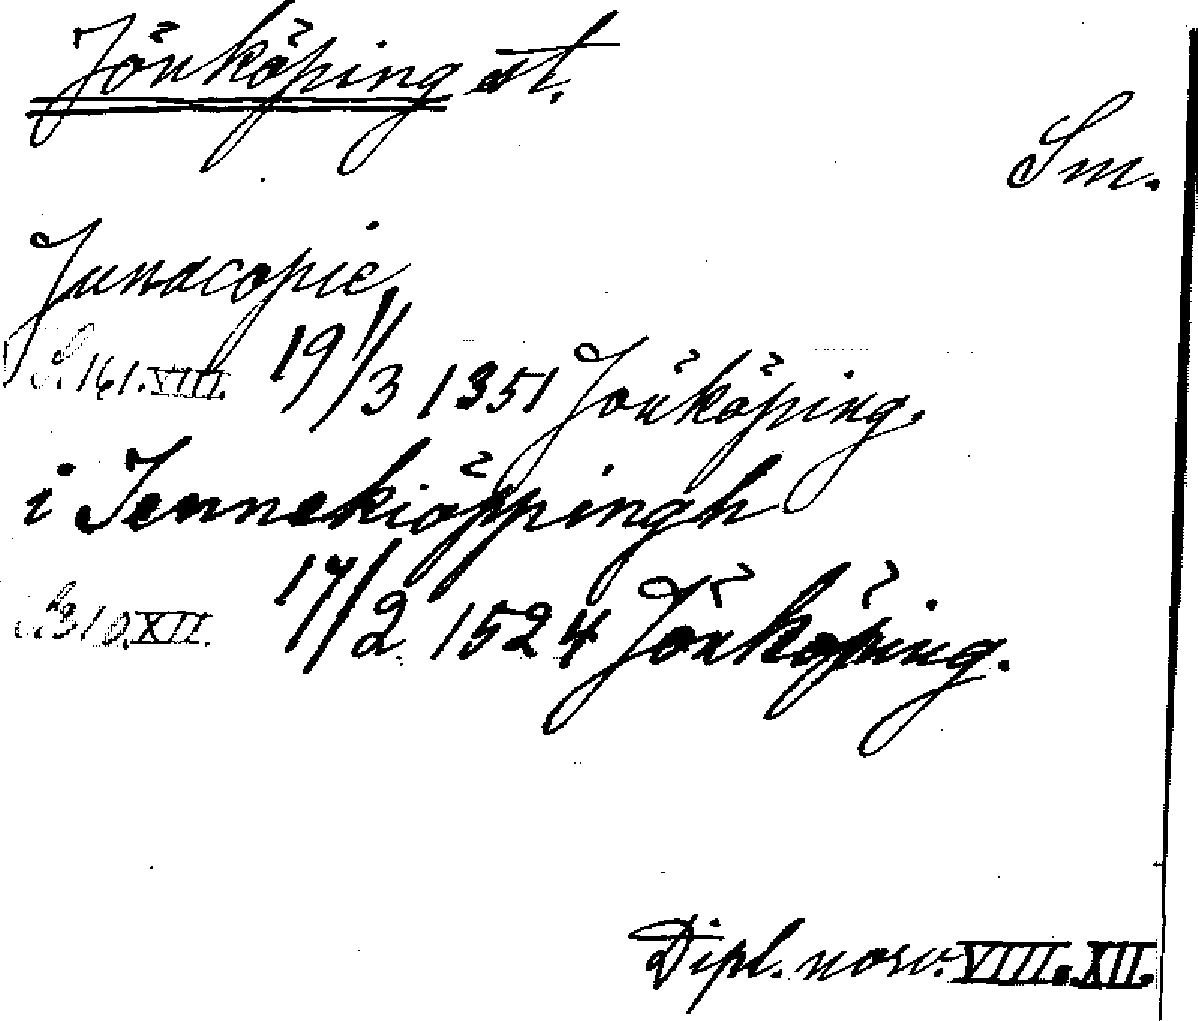 Jönköping st.
Sm.
Junacopie
S. 161. VIII. 19/3 1351 Jönköping.
i Jenneköppingh
S. 310. XII. 17/2 1524 Jönköping.
Dipl. norv. VIII. XII.